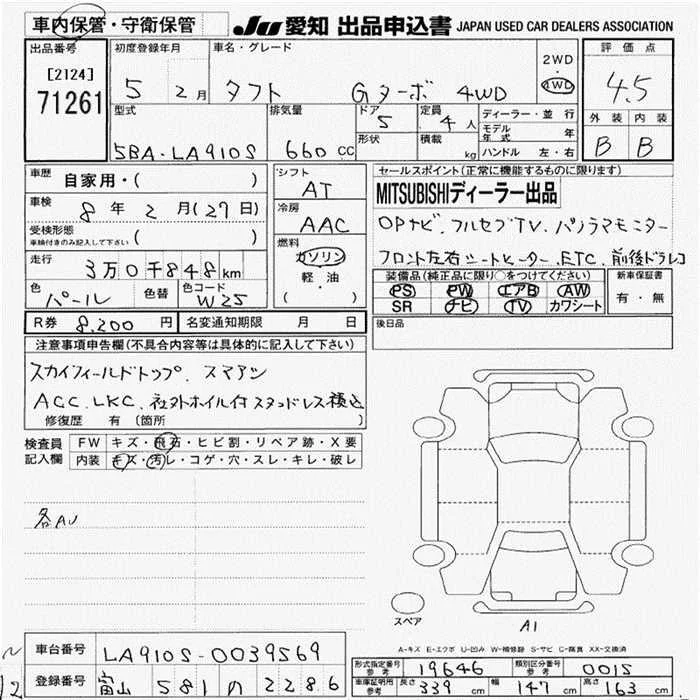 車内保管・守衛保管
JU 愛知 出品申込書 JAPAN USED CAR DEALERS ASSOCIATION
出品番号
[2124]
71261
初度登録年月
5 2月
車名・グレード
タフト Gターボ 4WD
2WD
4WD
評価点
4.5
外装 内装
B B
型式
5BA-LA910S
排気量
660 CC
ドア
5
形状
定員
4 人
積載
kg
ディーラー・並行
モデル年式 年
ハンドル 左・右
車歴 自家用・( )
車検 8年 2月(27日)
受検形態
車検付きのみ記入して下さい ( )
走行 3万0千848km
色 パール 色替
色コード W25
シフト
AT
冷房
AAC
燃料
ガソリン
軽・油
( ・ )
セールスポイント(正常に機能するものに限ります)
MITSUBISHIディーラー出品
OPナビ、フルセグTV、パノラマモニター
フロント左右シートヒーター、ETC、前後ドラレコ
装備品(純正品に限り○をつけてください)
PS PW エアB AW
SR ナビ TV カワシート
新車保証書
有・無
後日品
R券 8,200 円
名変通知期限 月 日
注意事項申告欄(不具合内容等は具体的に記入して下さい)
スカイフィールドトップ、スマアシ
ACC、LKC、社外ホイル付スタッドレス積込
修復歴 有(箇所 )
検査員記入欄
FW キズ・飛石・ヒビ割・リペア跡・X要
内装 キズ・汚レ・コゲ・穴・スレ・キレ・破レ
各AU
スペア
A1
A-キズ E-エクボ U-凹ミ W-補修跡 S-サビ C-腐食 XX-交換済
車台番号 LA910S-0039569
登録番号 富山 581 の 2286
形式指定番号 参考 19646
類別区分番号 参考 0015
車庫証明用 参考 長さ 339 cm 幅 147 cm 高さ 163 cm